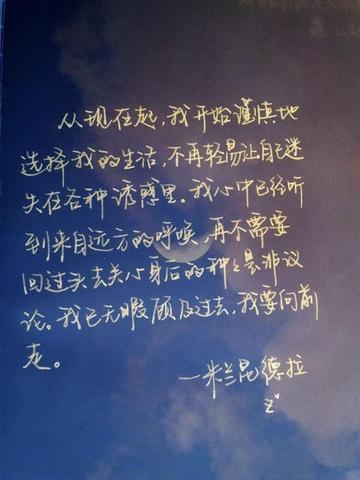 从现在起，我开始谨慎地
选择我的生活，不再轻易让自己迷
失在各种诱惑里。我心中已经听
到来自远方的呼唤，再不需要
回过头去关心身后的种种是非议
论。我已无暇顾及过去，我要向前
走。
—米兰昆德拉